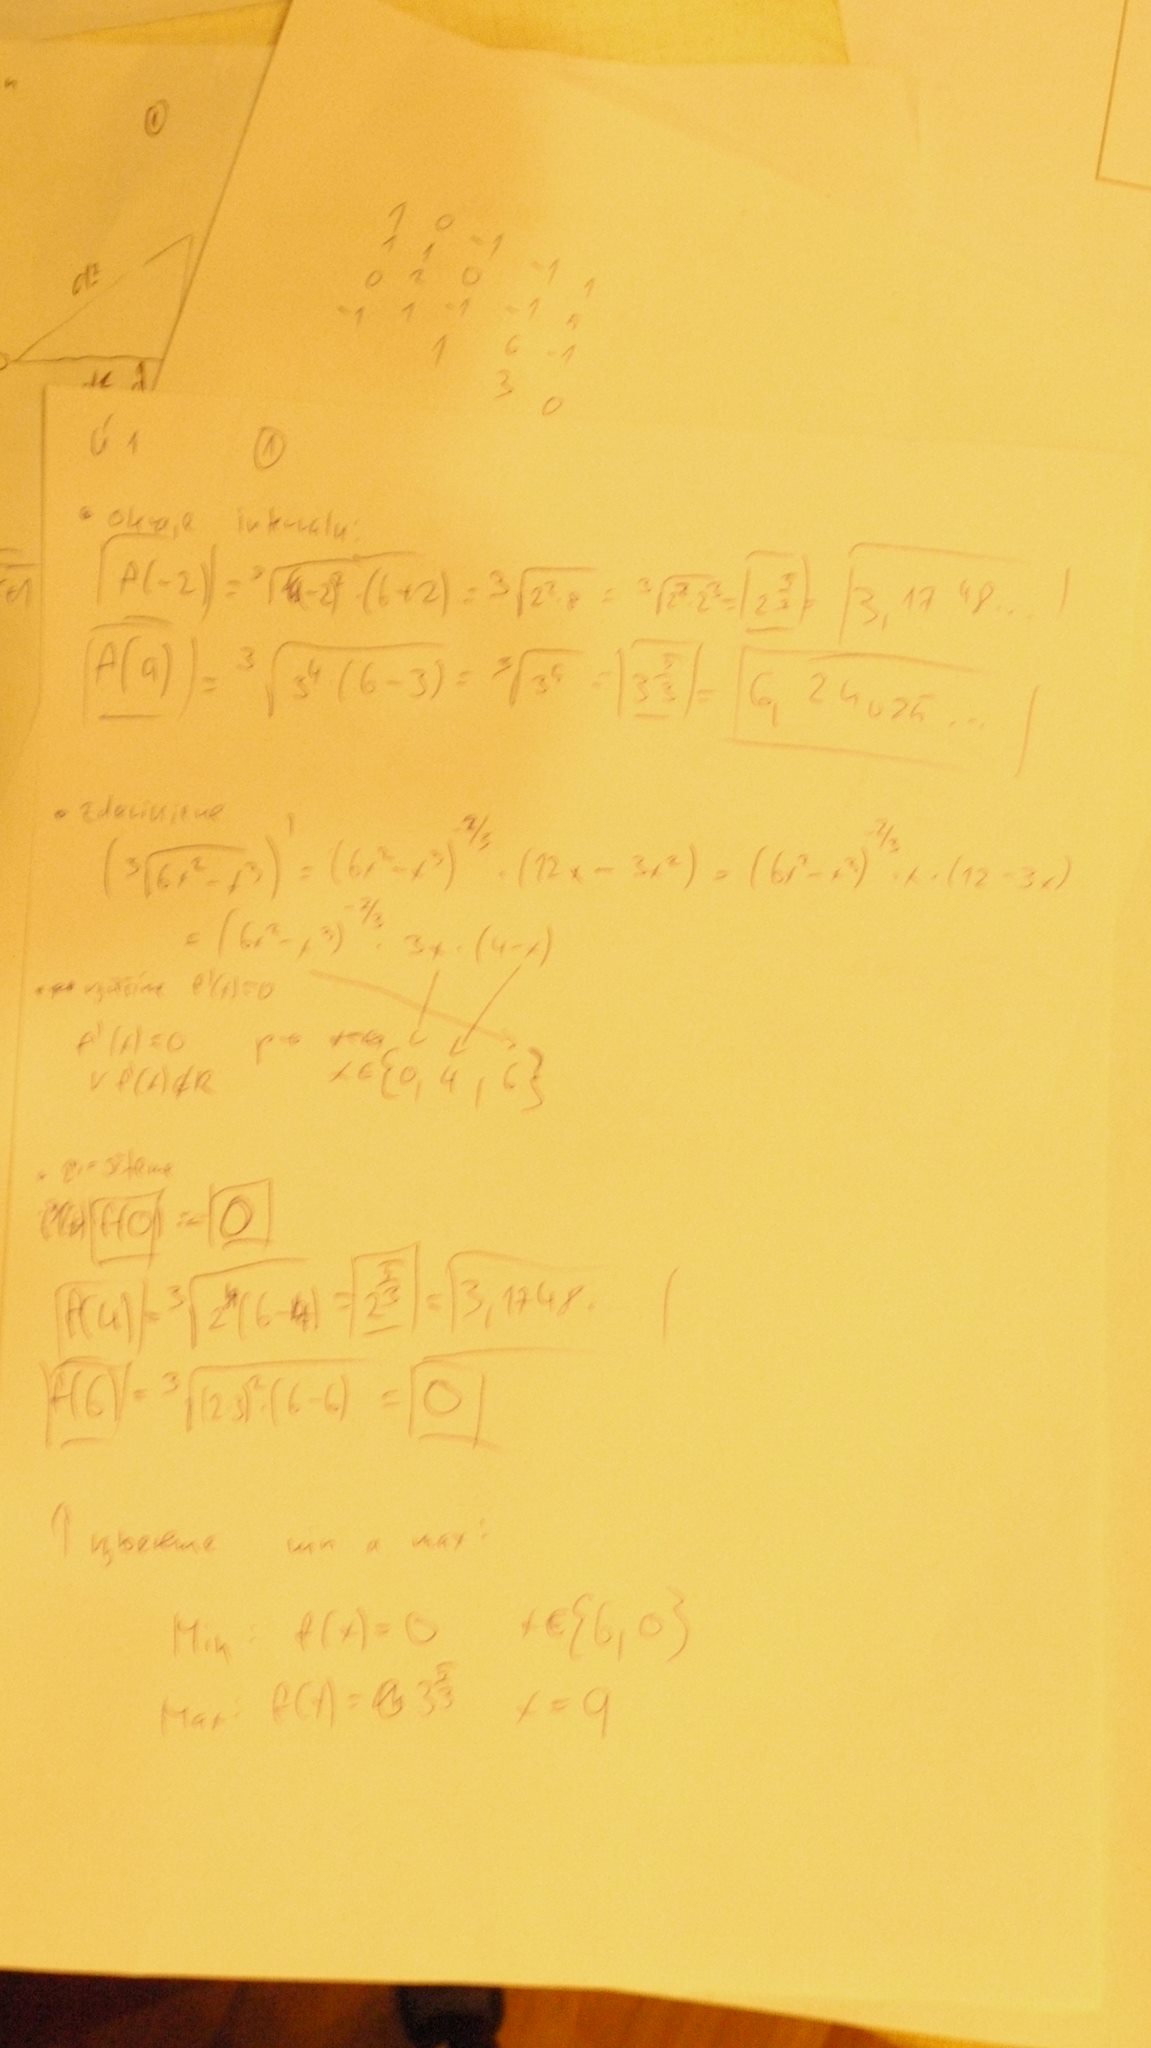 ①
1 0
1 1 -1
0 2 0 -1 1
-1 1 -1 -1 1
1 6 -1
3 0
Ú 1 ①
• okraje intervalu:
f(-2) = ³√((-2)² · (6+2)) = ³√(2² · 8) = ³√(2² · 2³) = 2^(5/3) = 3,1748...
f(9) = ³√(3⁴ (6-3)) = ³√3⁵ = 3^(5/3) = 6,24025...
• zderivujeme
(³√(6x²-x³))' = (6x²-x³)^(-2/3) · (12x - 3x²) = (6x²-x³)^(-2/3) · x · (12-3x)
= (6x²-x³)^(-2/3) · 3x · (4-x)
f'(x)=0
f'(x)=0 pro
∨ f'(x)∉R x∈{0, 4, 6}
f(0) = 0
f(4) = ³√(2⁴(6-4)) = 2^(5/3) = 3,1748.
f(6) = ³√((23)² · (6-6)) = 0
↑ vybereme min a max:
Min: f(x) = 0 x∈{6,0}
Max: f(x) = 3^(5/3) x = 9